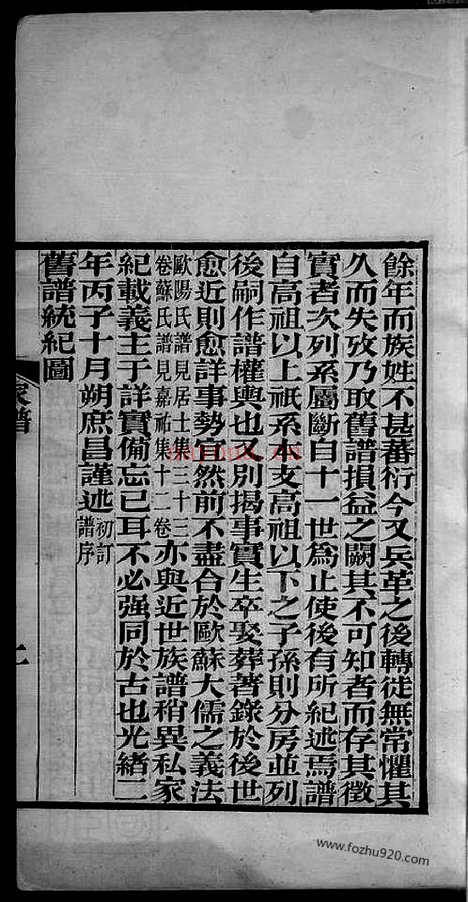 餘年而族姓不甚蕃衍今又兵革之後轉徙無常懼其
久而失攷乃取舊譜損益之闕其不可知者而存其徵
實者次列系屬斷自十一世為止使後有所紀述焉譜
自高祖以上祇系本支高祖以下之子孫則分房並列
後嗣作譜權輿也又別揭事實生卒娶葬著錄於後世
愈近則愈詳事勢宜然前不盡合於歐蘇大儒之義法
歐陽氏譜見居士集三十三
卷蘇氏譜見嘉祐集十二卷
亦與近世族譜稍異私家
紀載義主于詳實備忘已耳不必强同於古也光緒二
年丙子十月朔庶昌謹述
初訂
譜序
舊譜統紀圖
家譜
二
www.fozhu920.com